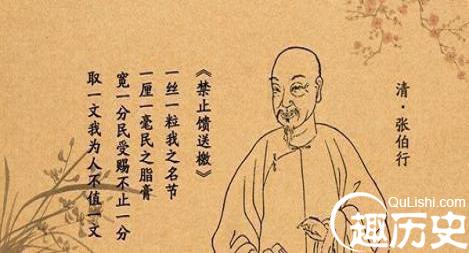 《禁止馈送檄》
一丝一粒我之名节
一厘一毫民之脂膏
宽一分民受赐不止一分
取一文我为人不值一文
清·张伯行
QuLishi.com
趣历史